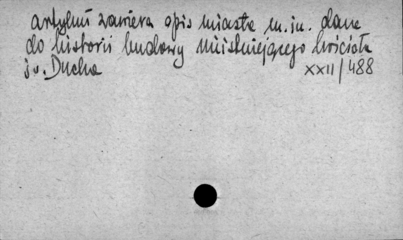 artykuł zawiera opis miasta m.in. dane
do historii budowy nieistniejącego kościoła
św. Ducha
XXII/488